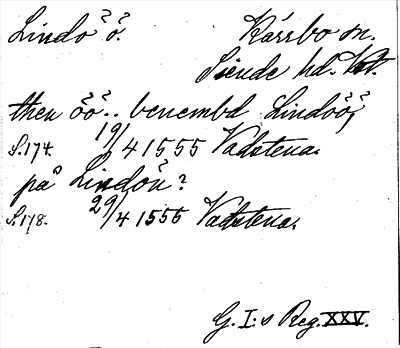 Lindo ö. Kärrbo sn.
Siende hd. Vstm.
then öö.. benembd Lindöö,
S. 174. 19/4 1555 Vadstena.
på Lindön?
S. 178. 29/4 1555 Vadstena.
G. I:s Reg. XXV.